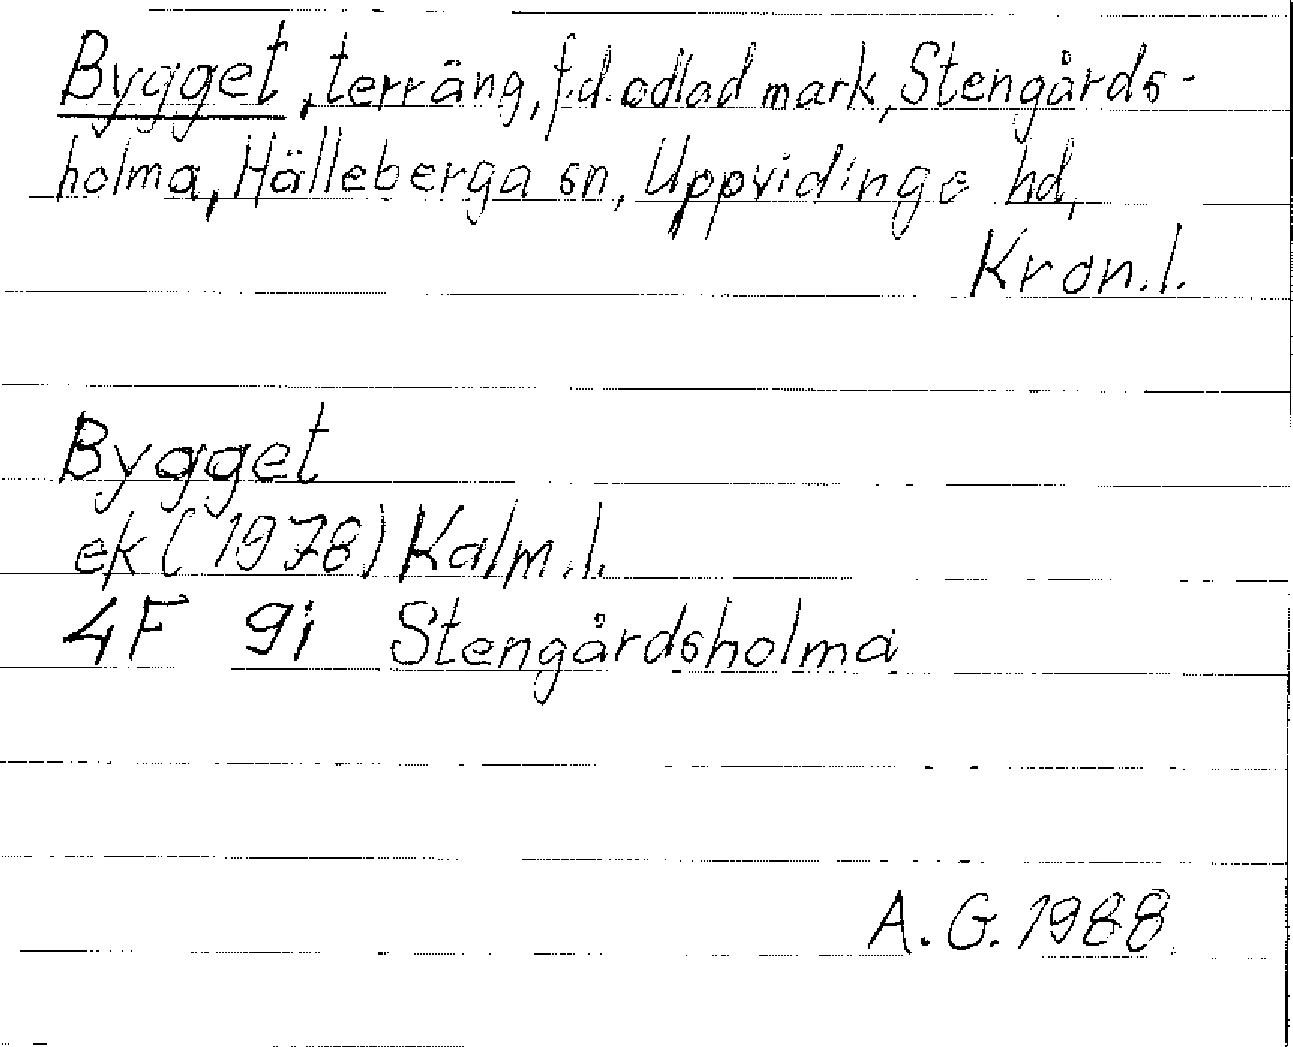 Bygget, terräng, f.d. odlad mark, Stengårds-
holma, Hälleberga sn, Uppvidinge hd,
Kron.l.
Bygget
ek (1978) Kalm.l.
4F 9i Stengårdsholma
A.G. 1988